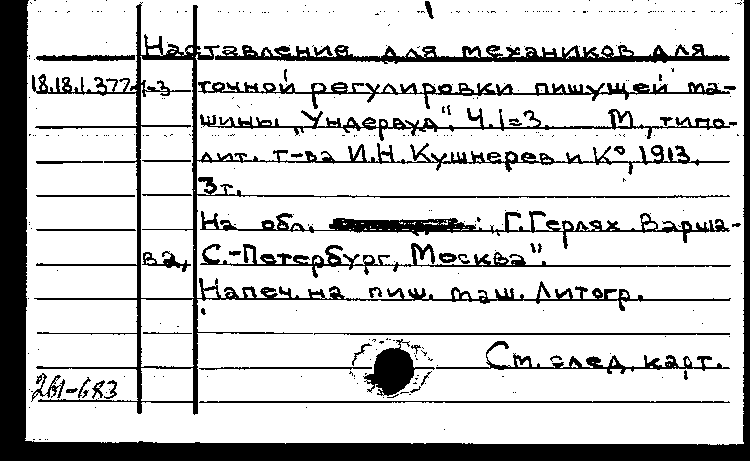 Наставление для механиков для
18.18.1.377 1-3 точной регулировки пишущей ма-
шины „Ундервуд". Ч.1-3. М., типо-
лит. т-ва И.Н. Кушнерев и К°, 1913.
3т.
На обл. : „Г. Герлях. Варша-
ва, С.-Петербург, Москва".
Напеч. на пиш. маш. Литогр.
См. след. карт.
261-683